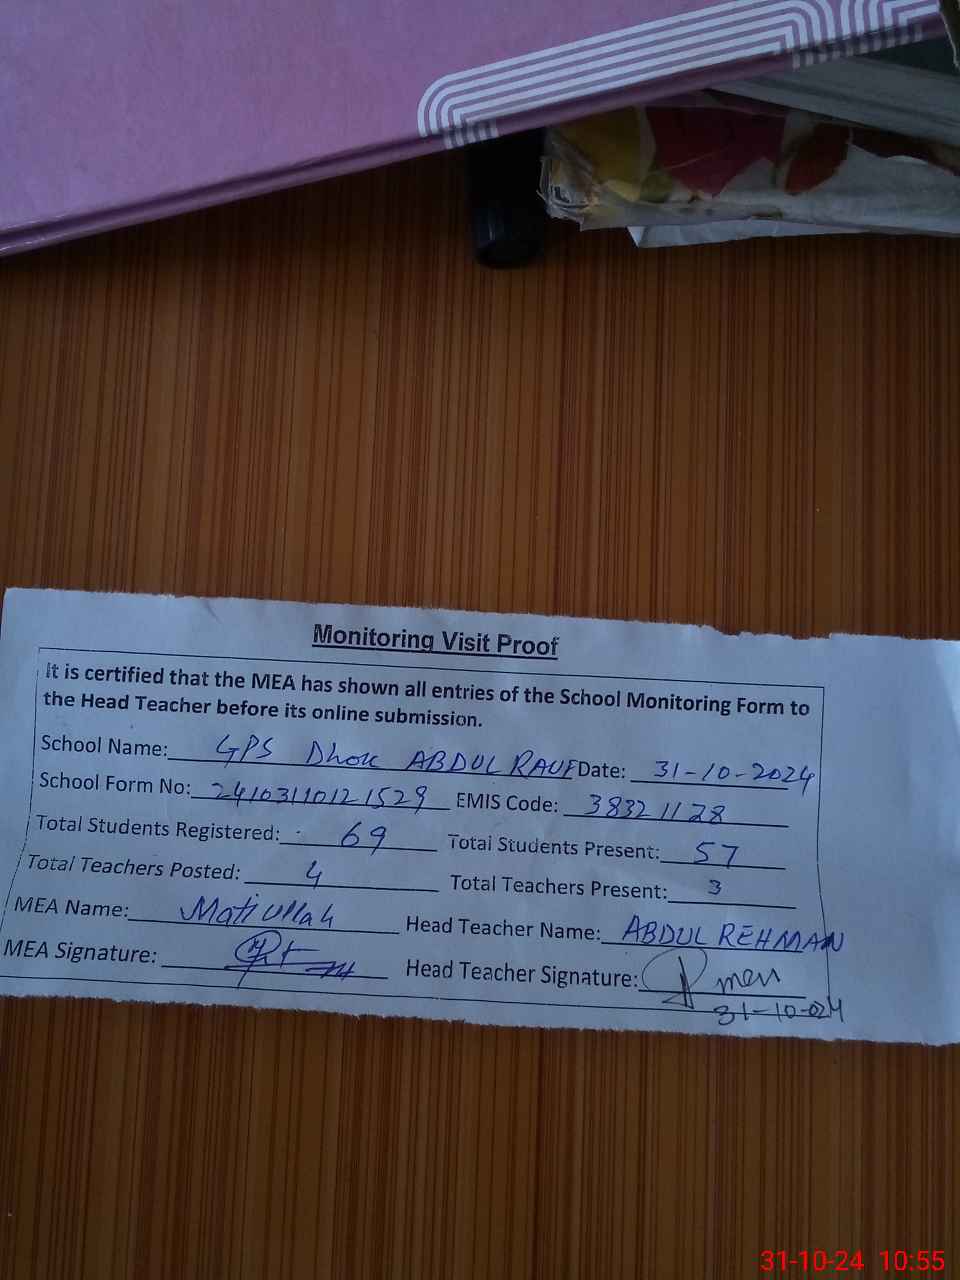 Monitoring Visit Proof
It is certified that the MEA has shown all entries of the School Monitoring Form to
the Head Teacher before its online submission.
School Name: GPS Dhok ABDUL RAUF Date: 31-10-2024
School Form No: 24103110121529 EMIS Code: 38321128
Total Students Registered: 69 Total Students Present: 57
Total Teachers Posted: 4 Total Teachers Present: 3
MEA Name: Matiullah Head Teacher Name: ABDUL REHMAN
MEA Signature: Head Teacher Signature:
31-10-024
31-10-24 10:55